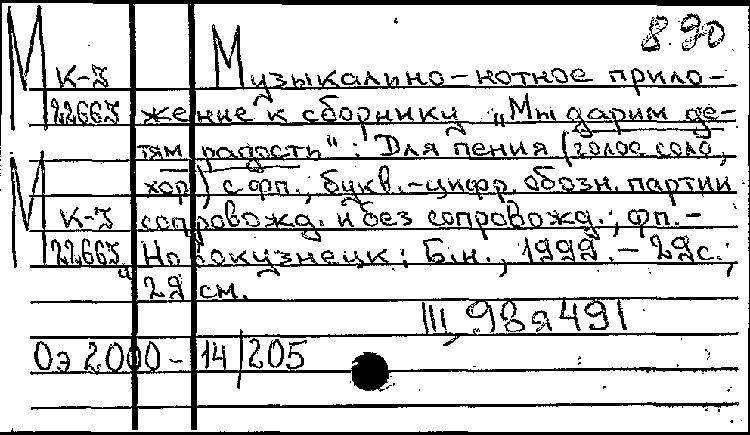 8.90
М К-3 Музыкально-нотное прило-
22663 жение к сборнику „Мы дарим де-
тям радость": Для пения (голос соло,
М хор) с фп., букв.-цифр. обозн. партии
К-3 сопровожд. и без сопровожд.; фп.-
22663 Новокузнецк: Б.и., 1999.- 29с.;
29 см.
Щ 98я491
Оэ 2000-14/205